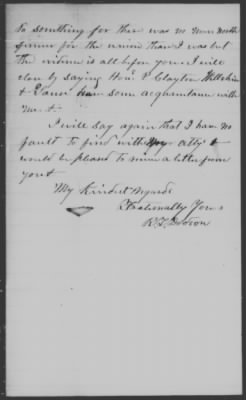 do something for there was no man north
firmer for the union than I was but
the evidence is all before you I will
close by saying Hon. Clayton
& have some acquaintance with
me &
I will say again that I have no
fault to find with my atty &
would be pleased to receive a letter from
you &
My Kindest Regards
Fraternally Yours
R. T. Dodson